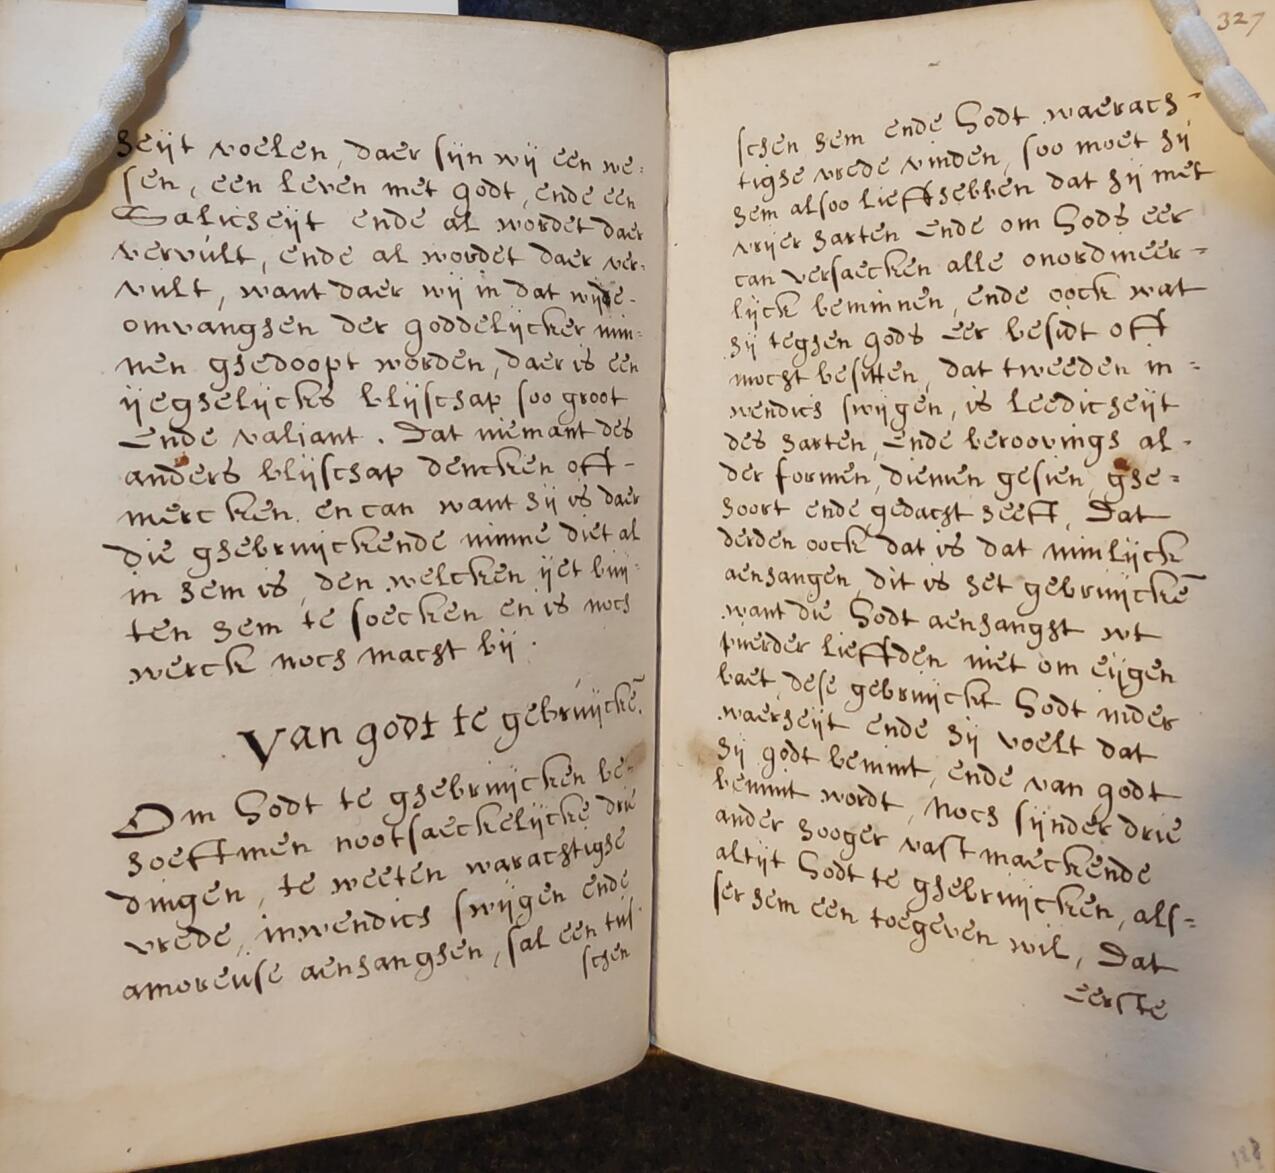 heijt voelen, daer sijn wij een we:
sen, een leven met godt, ende een
Salicheijt ende al wordet daer
vervult, ende al wordet daer ver:
vult, want daer wij in dat wijde-
omvanghen der goddelijcker min:
nen ghedoopt worden, daer is een
ijeghelijcks blijschap soo groot
Ende valiant. Dat niemant des
anders blijschap dencken oft-
mercken en can want hij is daer
die ghebruijckende minne diet al
in hem is, den welcken ijet buij:
ten hem te soecken en is noch
werck noch macht bij.
Van godt te gebruijckē.
Om Godt te ghebruijcken be-
hoeft men nootsaeckelijcke drie
dingen, te weeten warachtighe
vrede, inwendich swijgen ende
amoreuse aenhanghen, sal een tus
schen
327
schen hem ende Godt waerach-
tighe vrede vinden, soo moet hij
hem alsoo lieffhebben dat hij met
vrijer harten Ende om Gods eer
can versaecken alle onordineer-
lijck beminnen, ende oock wat
hij teghen gods Eer besidt oft
mocht besitten, dat tweeden in-
wendich swijgen, is Leedicheijt
des harten, Ende beroovingh al-
der formen, diemen gesien, ghe-
hoort ende gedacht heeft, Dat
derden oock dat is dat minlijck
aenhangen, dit is het gebruijckē
want die Godt aenhanght wt
puerder liefden niet om eijgen
baet, dese gebruijckt Godt inder
waerheijt ende hij voelt dat
hij godt bemint, ende van godt
bemint wordt, Noch sijnder drie
ander hooger vast maeckende
altijt Godt te ghebruijcken, als-
ser hem een toegeven wil, Dat
Eerste